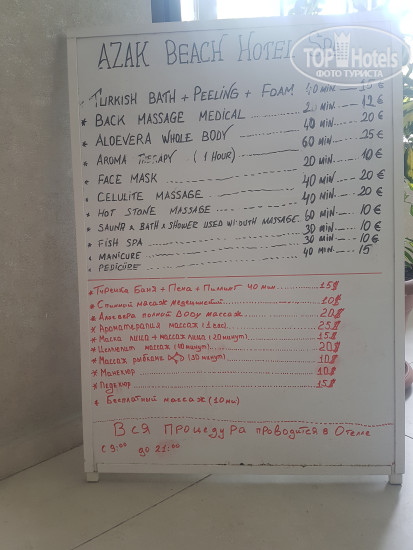 AZAK BEACH HOTEL SPA
TOPHotels
ФОТО ТУРИСТА
TURKISH BATH + PEELING + FOAM 40 MIN 15€
* BACK MASSAGE MEDICAL 20 MIN 12€
* ALOEVERA WHOLE BODY 40 MIN 20€
* AROMA THERAPY (1 HOUR) 60 MIN 25€
* FACE MASK 20 MIN 10€
* CELULITE MASSAGE 40 MIN 20€
* HOT STONE MASSAGE 40 MIN 20€
* SAUNA & BATH & SHOWER USED WIOUTH MASSAGE 60 MIN 10€
* FISH SPA 30 MIN 10€
* MANICURE 30 MIN 10€
* PEDICURE 40 MIN 15
* Туречка Баня + Пена + Пилинг 40 мин 15$
* Спинной масаж медецинский 10$
* Алоевера полной BODY массаж 20$
* Ароматерапия массаж (1 час) 25$
* Маска лица + массаж лица (20 минут) 15$
* Целлюлит массаж (40 минут) 20$
* Массаж рыбками (30 минут) 10$
* Манекюр 10$
* Педекюр 15$
* Бесплатный массаж (10 ми)
Вся процедура проводится в Отеле
с 9:00 до 21:00